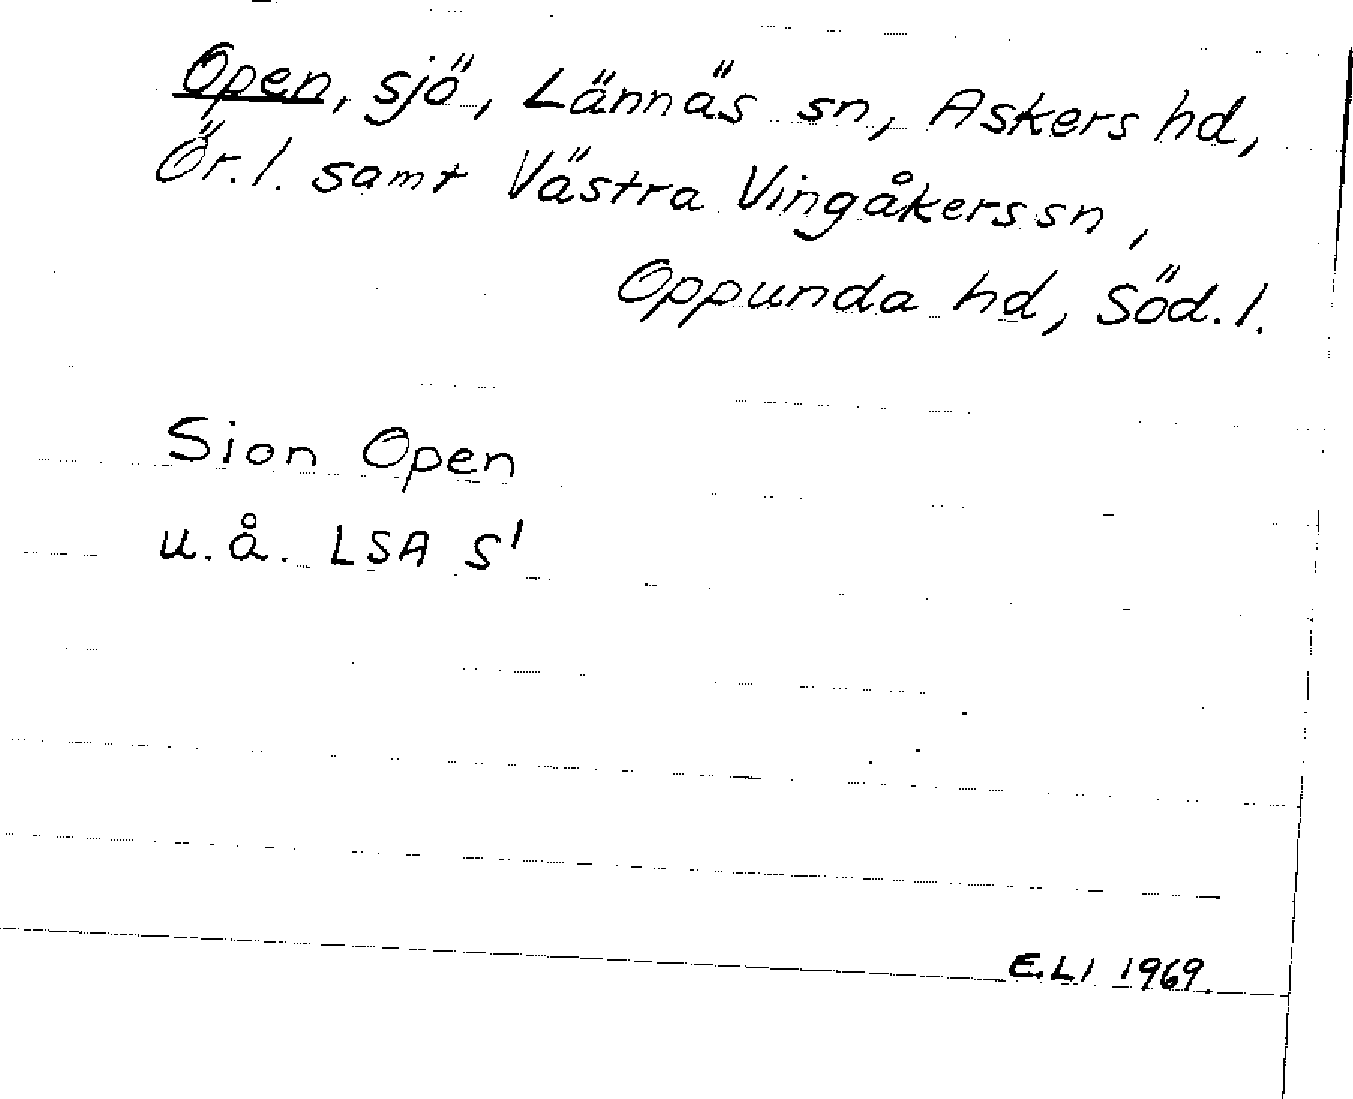 Open, sjö, Lännäs sn, Askers hd,
Ör.l. samt Västra Vingåkers sn,
Oppunda hd, Söd.l.
Sion Open
u.å. LSA S1
E.LI 1969.